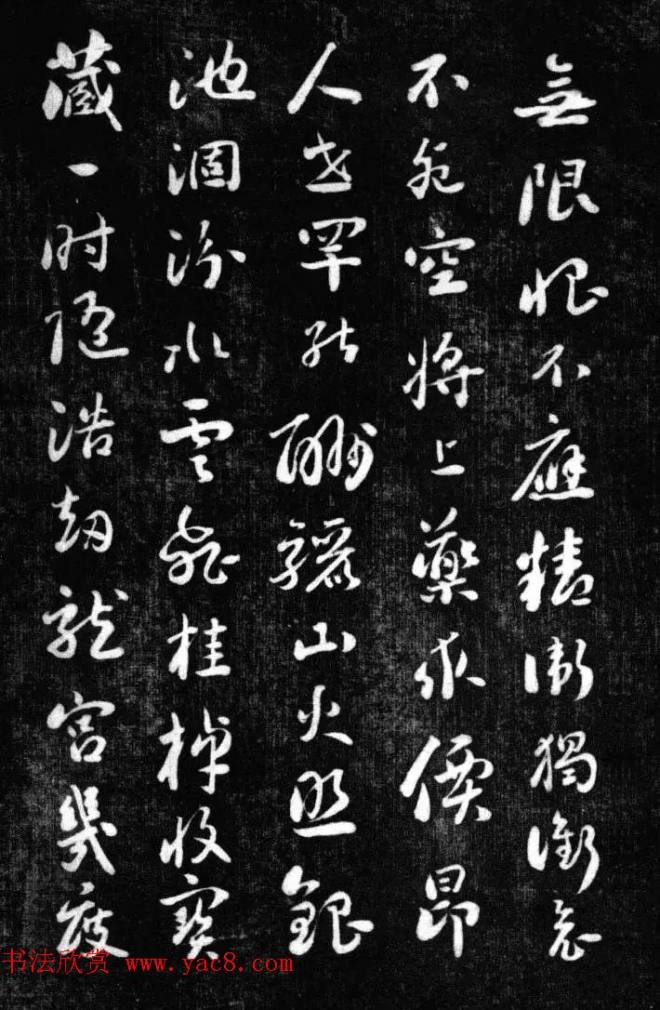 無限恨不應精衛獨銜冤
不死空將上藥求價昂
人世罕能酬驪山火照銀
池涸汾水雲飛桂棹收寶
藏一時隨浩劫龍宮幾度
书法欣赏 www.yac8.com